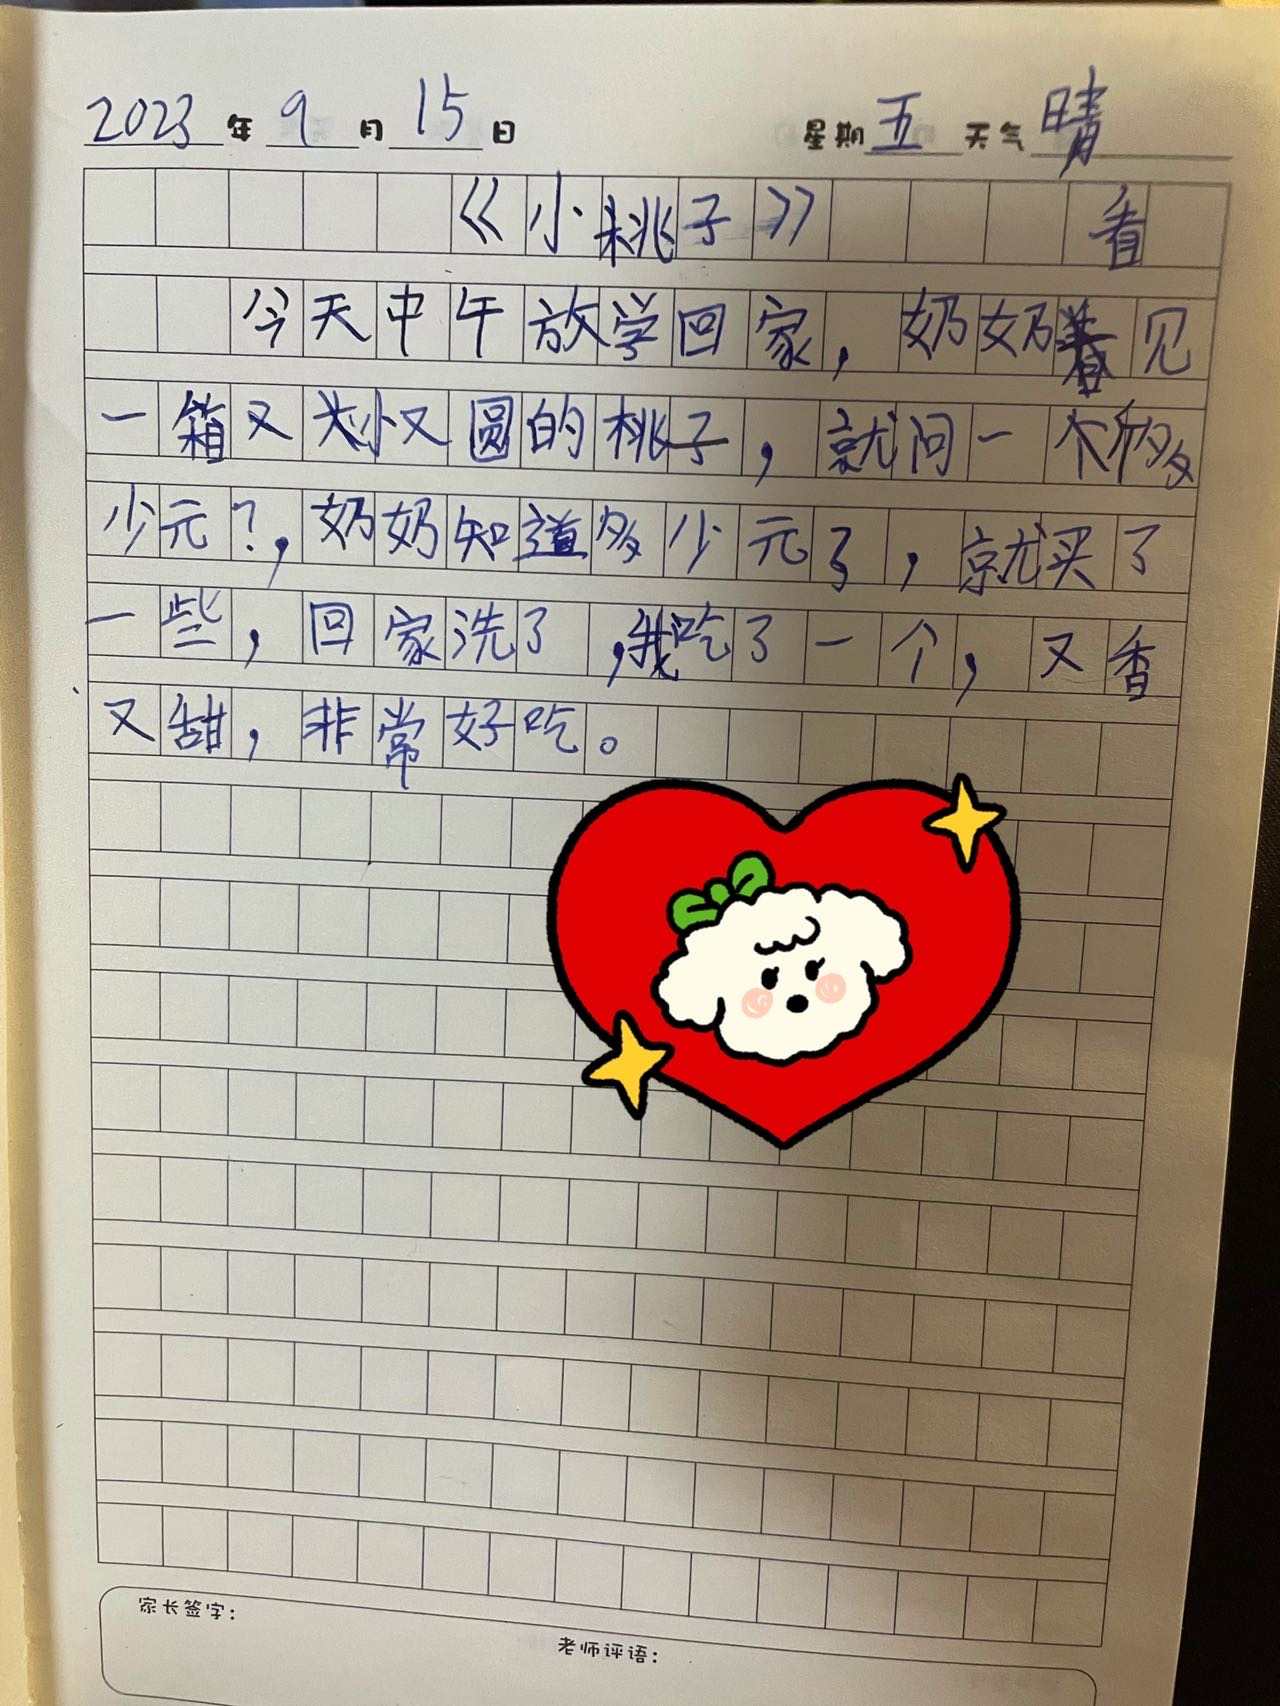 2023年9月15日 星期五天气晴
《小桃子》 看
今天中午放学回家，奶奶看见
一箱又小又圆的桃子，就问一个多
少元？，奶奶知道多少元了，就买了
一些，回家洗了，我吃了一个，又香
又甜，非常好吃。
家长签字：
老师评语：